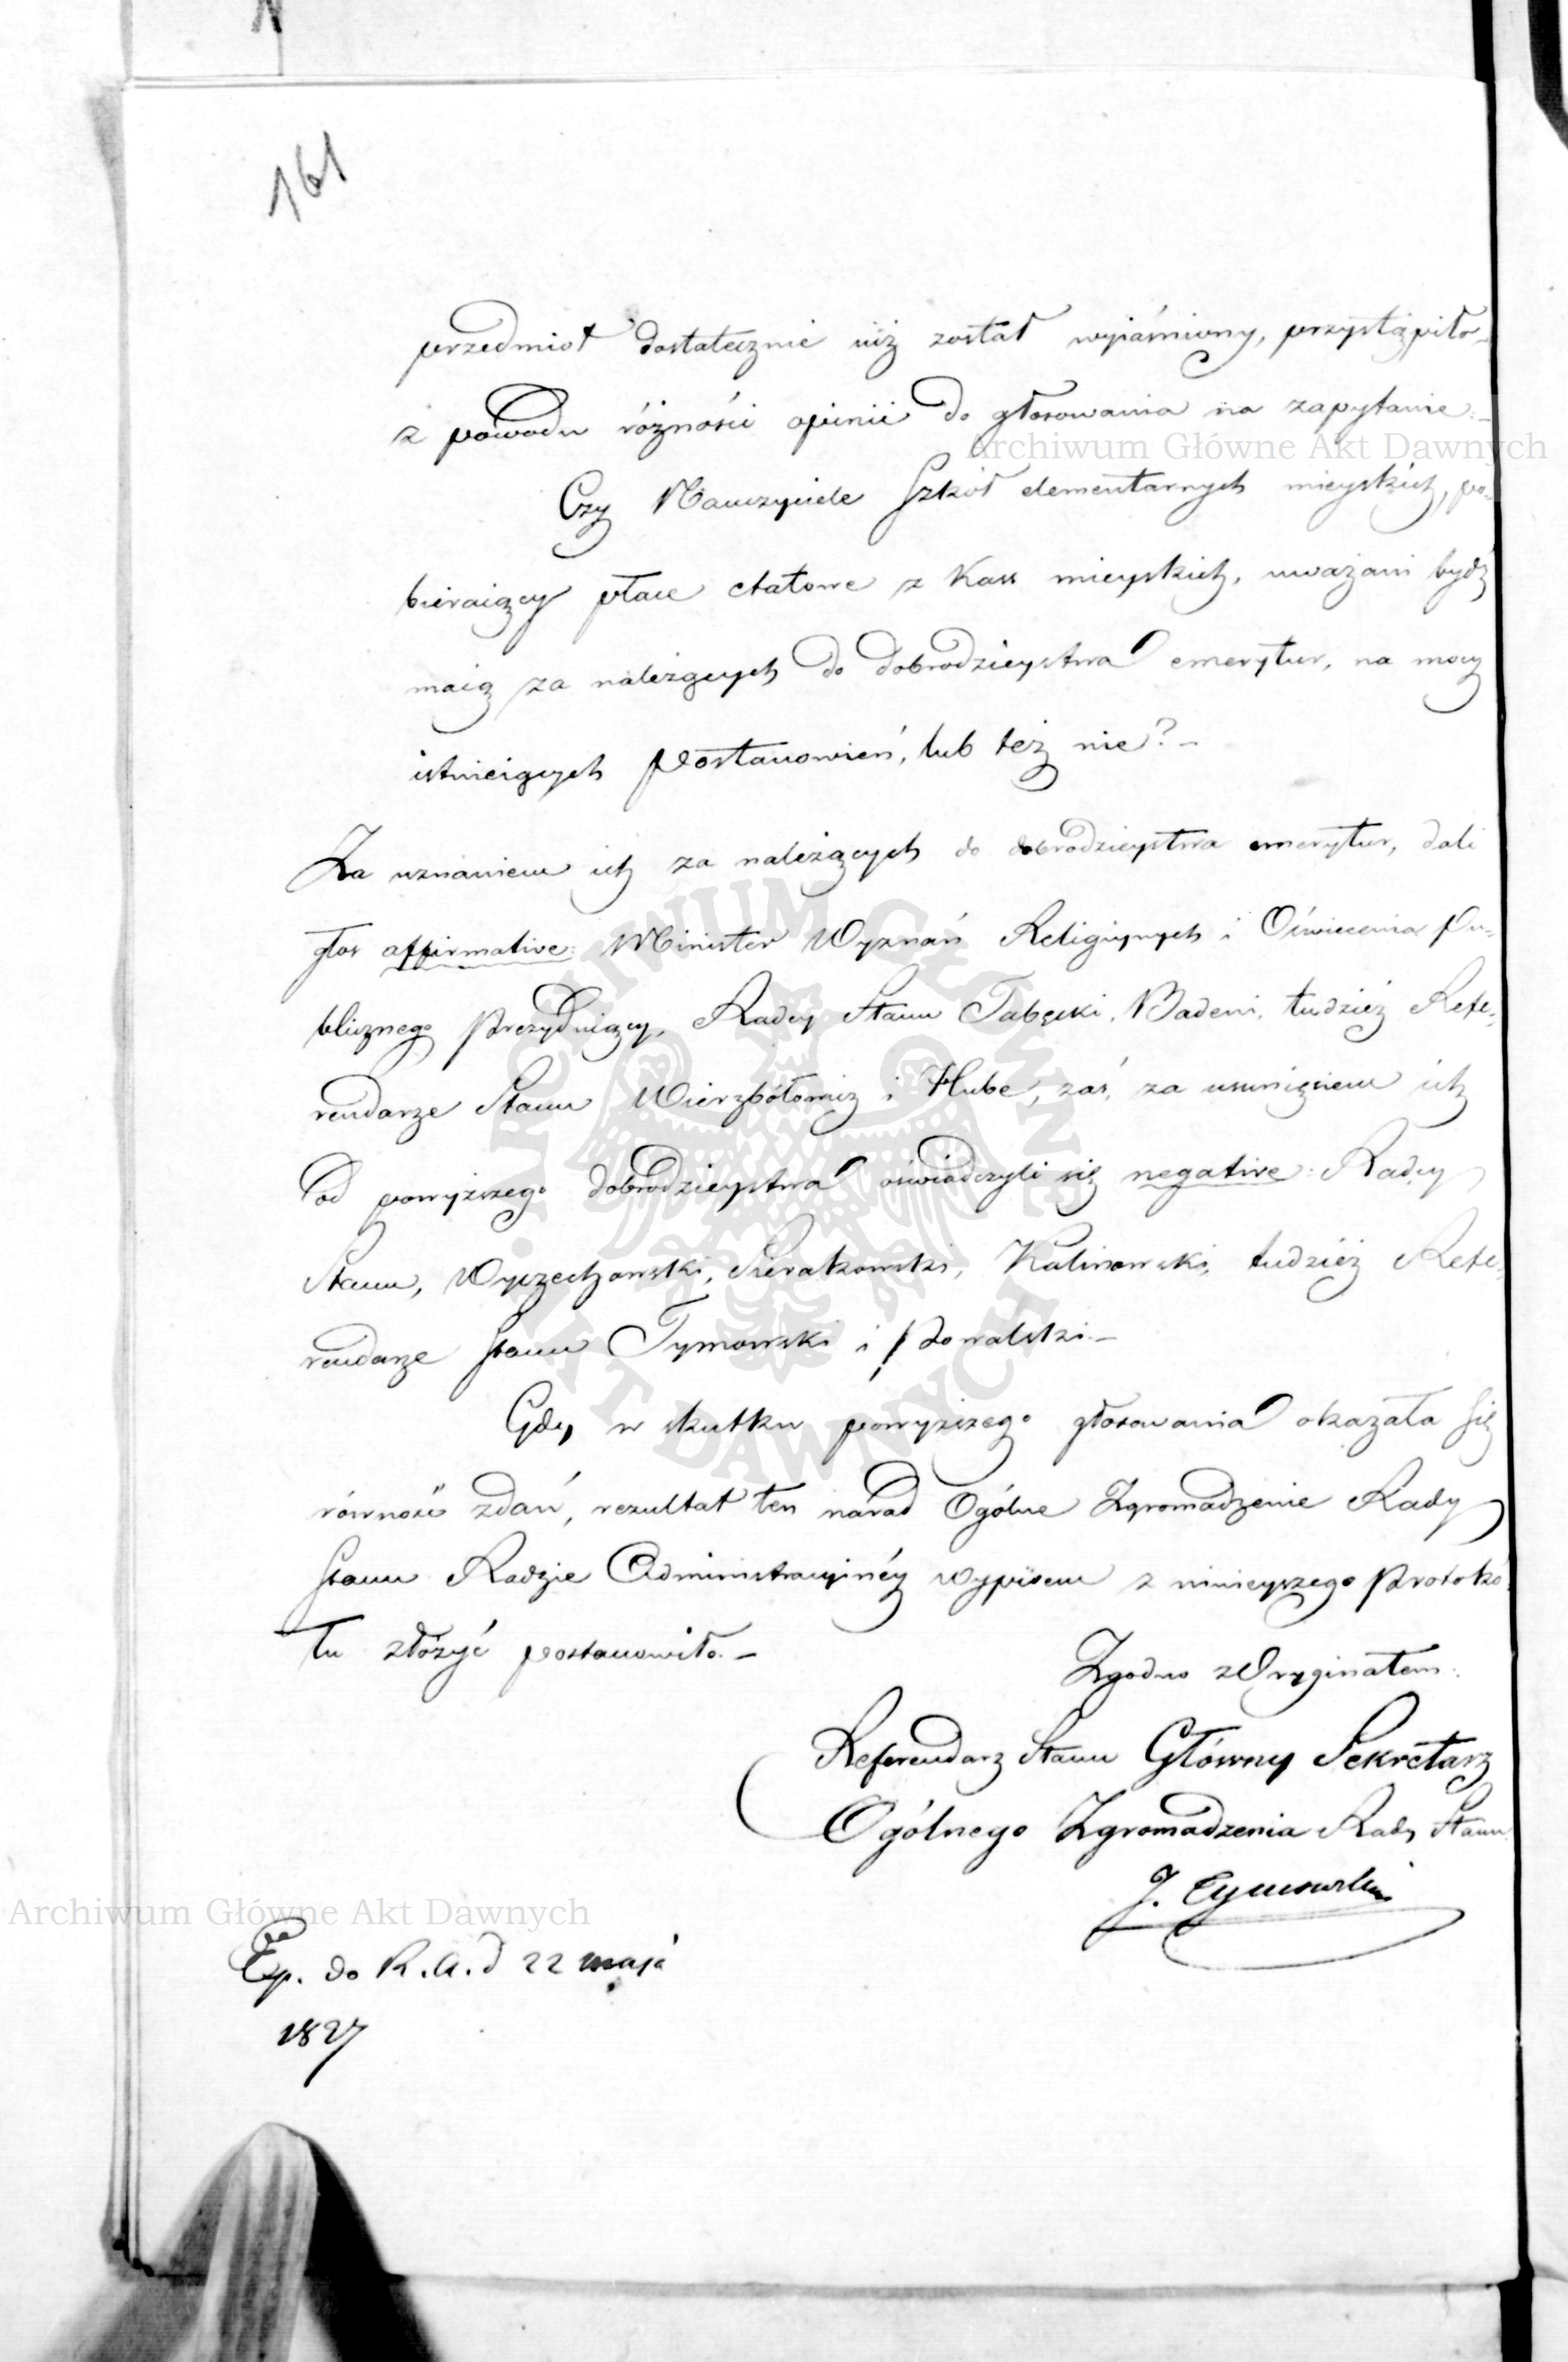 161
przedmiot dostatecznie iuż został wyiaśniony, przystąpiło
z powodu różności opinii do głosowania na zapytanie:
Archiwum Główne Akt Dawnych
Czy Nauczyciele Szkół elementarnych mieyskich, po-
bieraiący płace etatowe z Kass mieyskich, uważani bydź
maią za należących do dobrodzieystwa emerytur, na mocy
istnieiących Postanowień, lub też nie? –
Za uznaniem ich za należących do dobrodzieystwa emerytur, dali
głos affirmative: Minister Wyznań Religiynych i Oświecenia Pu-
blicznego Prezyduiący, Radcy Stanu Tabęcki, Badeni, tudzież Refe-
rendarze Stanu Wierzbołowicz i Hube, zaś, za usunięciem ich
od powyższego dobrodzieystwa oświadczyli się negative: Radcy
Stanu, Wyczechowski, Sierakowski, Kalinowski, tudzież Refe-
rendarze Stanu Tymowski i Kowalski. –
Gdy w skutku powyższego głosowania okazała się
równość zdań, rezultat ten narad Ogólne Zgromadzenie Rady
Stanu Radzie Administracyinéy wypisem z ninieyszego Protokó-
łu złożyć postanowiło. –
Zgodno z Oryginałem:
Referendarz Stanu Główny Sekretarz
Ogólnego Zgromadzenia Rady Stanu
J. Tymowski
Archiwum Główne Akt Dawnych
Exp. do R. A. d 22 maja
1827
ARCHIWUM GŁÓWNE AKT DAWNYCH